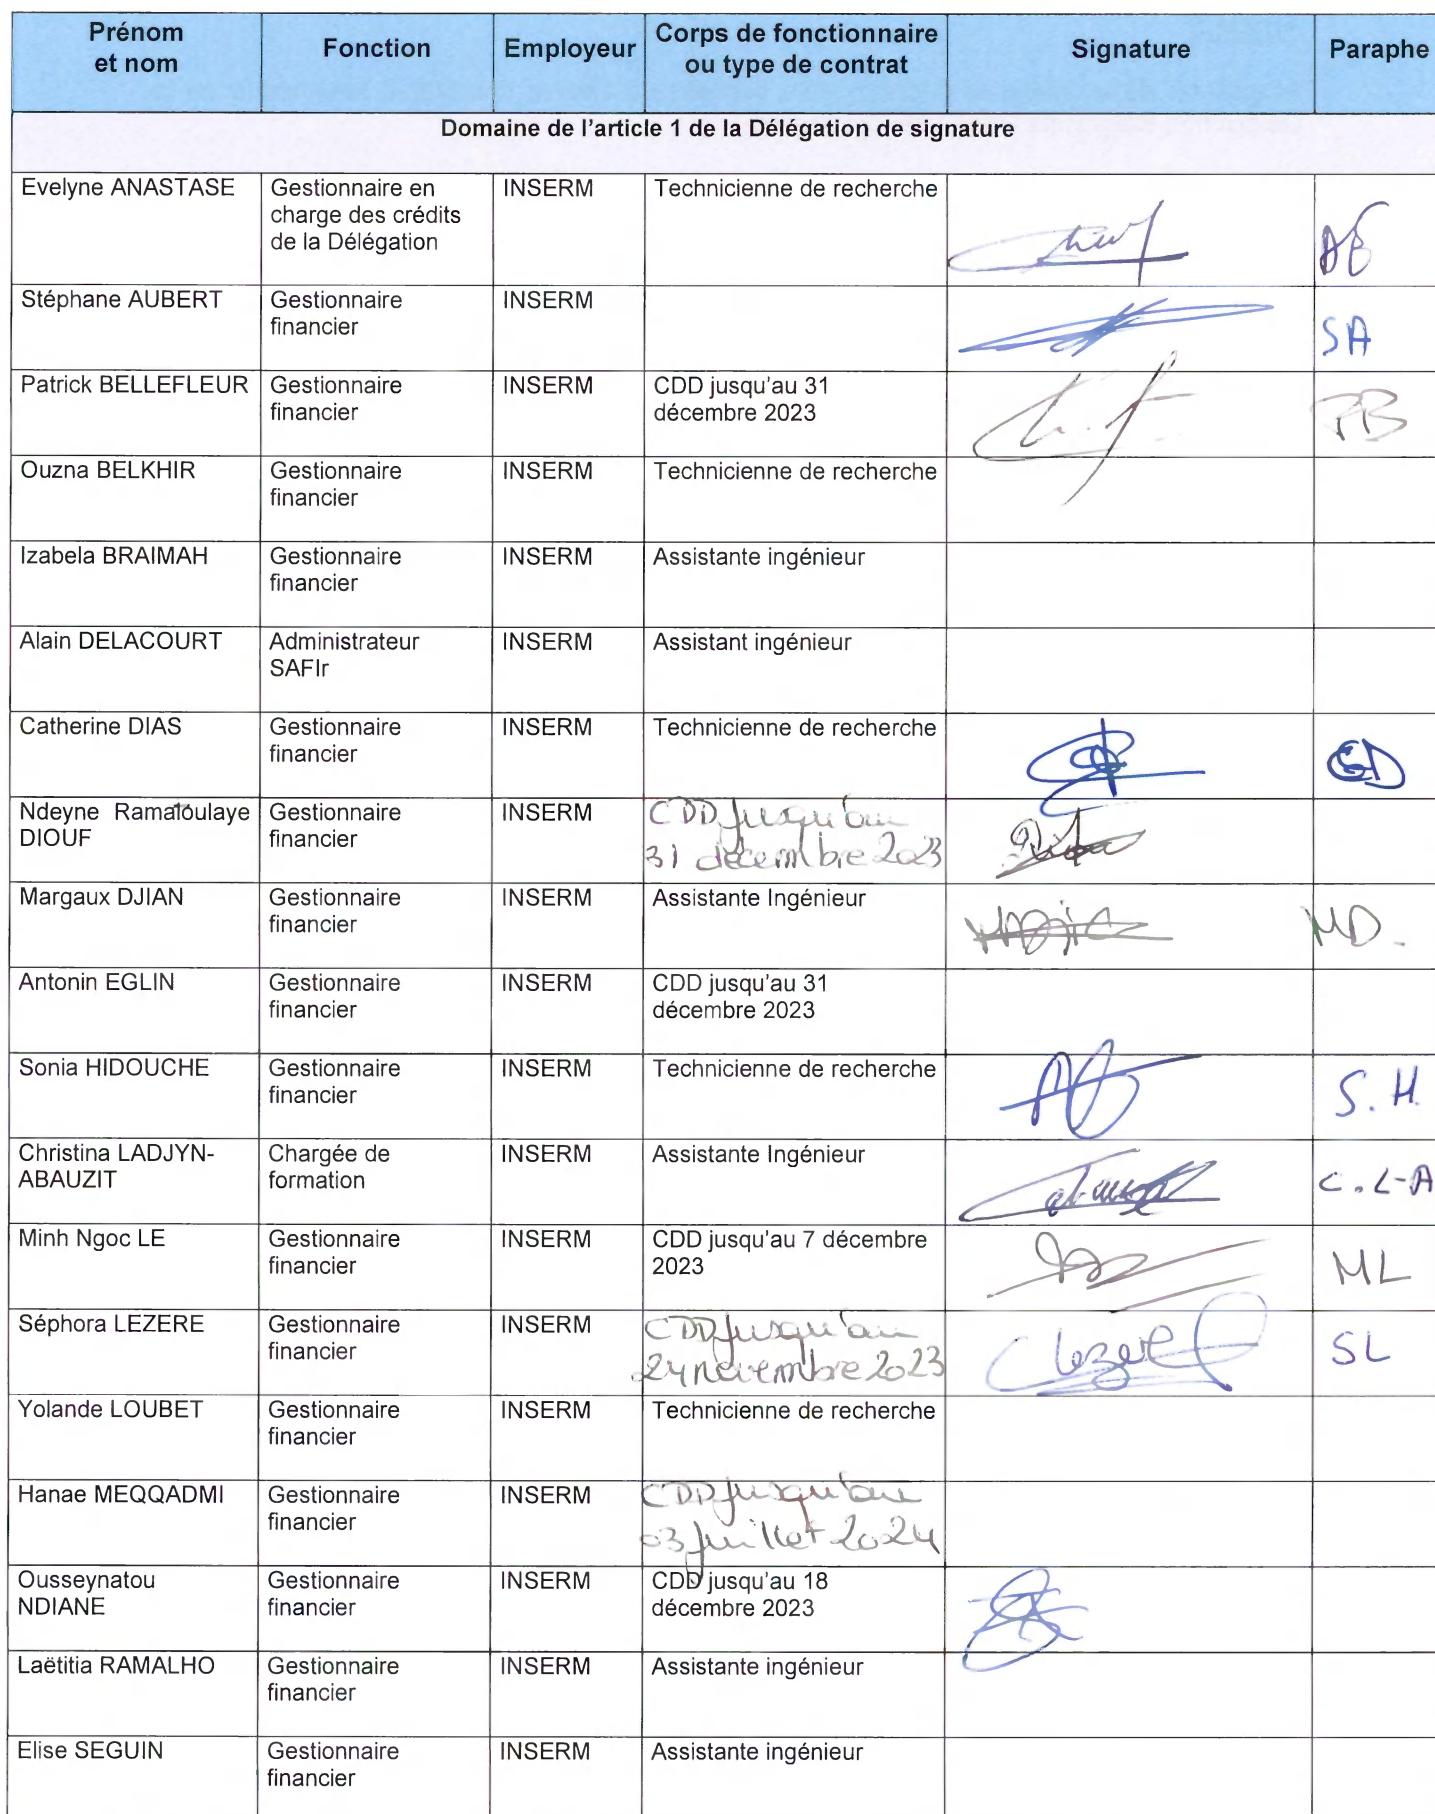 Prénom et nom Fonction Employeur Corps de fonctionnaire ou type de contrat Signature Paraphe
Domaine de l'article 1 de la Délégation de signature
Evelyne ANASTASE Gestionnaire en charge des crédits de la Délégation INSERM Technicienne de recherche AE
Stéphane AUBERT Gestionnaire financier INSERM SA
Patrick BELLEFLEUR Gestionnaire financier INSERM CDD jusqu'au 31 décembre 2023 PB
Ouzna BELKHIR Gestionnaire financier INSERM Technicienne de recherche
Izabela BRAIMAH Gestionnaire financier INSERM Assistante ingénieur
Alain DELACOURT Administrateur SAFIr INSERM Assistant ingénieur
Catherine DIAS Gestionnaire financier INSERM Technicienne de recherche CD
Ndeyne Ramatoulaye DIOUF Gestionnaire financier INSERM CDD jusqu'au 31 décembre 2023
Margaux DJIAN Gestionnaire financier INSERM Assistante Ingénieur MD.
Antonin EGLIN Gestionnaire financier INSERM CDD jusqu'au 31 décembre 2023
Sonia HIDOUCHE Gestionnaire financier INSERM Technicienne de recherche S.H.
Christina LADJYN-ABAUZIT Chargée de formation INSERM Assistante Ingénieur C.L-A
Minh Ngoc LE Gestionnaire financier INSERM CDD jusqu'au 7 décembre 2023 ML
Séphora LEZERE Gestionnaire financier INSERM CDD jusqu'au 24 novembre 2023 SL
Yolande LOUBET Gestionnaire financier INSERM Technicienne de recherche
Hanae MEQQADMI Gestionnaire financier INSERM CDD jusqu'au 03 juillet 2024
Ousseynatou NDIANE Gestionnaire financier INSERM CDD jusqu'au 18 décembre 2023
Laëtitia RAMALHO Gestionnaire financier INSERM Assistante ingénieur
Elise SEGUIN Gestionnaire financier INSERM Assistante ingénieur